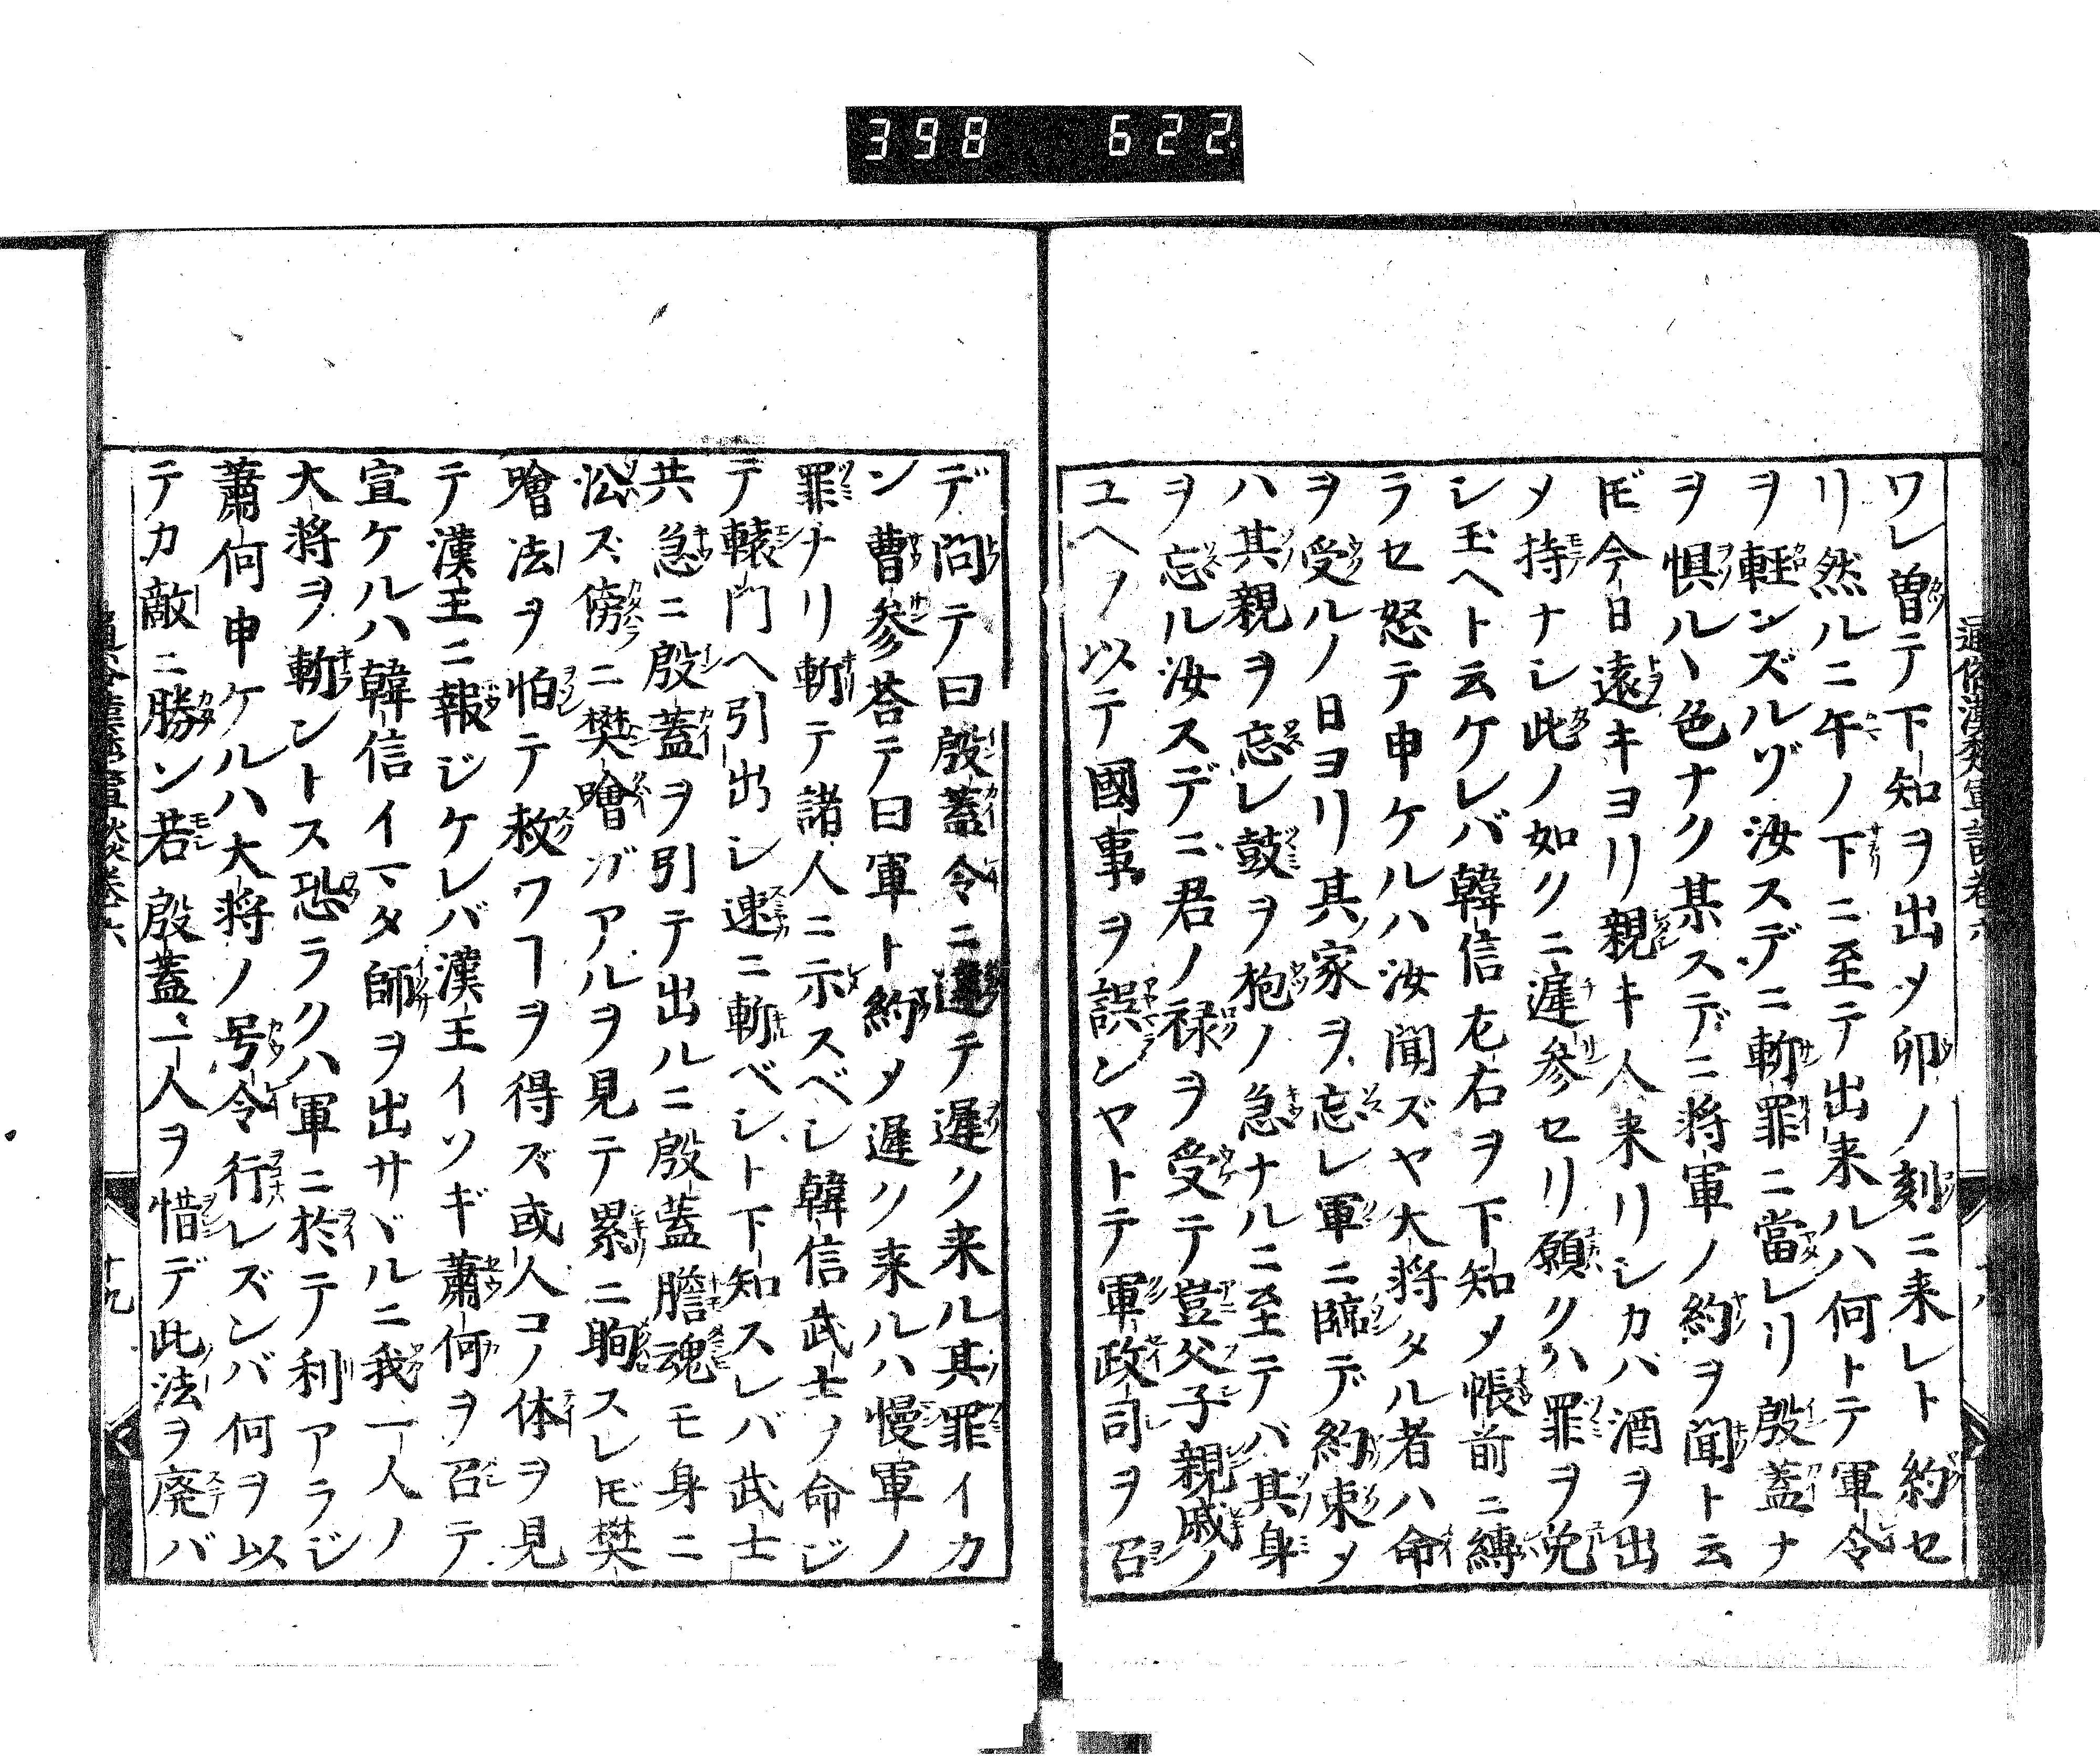 398 622
ワレ曽テ下知ヲ出メ卯ノ刻ニ来レト約セ
リ然ルニ午ノ下ニ至テ出来ルハ何トテ軍令
ヲ軽ンズルゾ汝スデニ斬罪ニ當レリ殷蓋ナ
ヲ惧ルヽ色ナク某スデニ将軍ノ約ヲ聞ト云
𪜈今日遠キヨリ親キ人来リシカバ酒ヲ出
メ持ナシ此ノ如クニ遅参セリ願クハ罪ヲ免
シ玉ヘト云ケレバ韓信左右ヲ下知メ帳前ニ縛
ラセ怒テ申ケルハ汝聞ズヤ大将タル者ハ命
ヲ受ルノ日ヨリ其家ヲ忘レ軍ニ臨デ約束メ
ハ其親ヲ忘レ鼓ヲ枹ノ急ナルニ至テバ其身
ヲ忘ル汝スデニ君ノ禄ヲ受テ豈父子親戚ノ
ユヘヲ以テ國事ヲ誤ンヤトテ軍政司ヲ召
デ問テ曰殷蓋令ニ違テ遅ク来ル其罪イカ
ン曹参荅テ曰軍ト約メ遅ク来ルハ慢軍ノ
罪ナリ斬テ諸人ニ示スベシ韓信武士ノ命ジ
テ轅門ヘ引出シ速ニ斬ベシト下知スレバ武士
共急ニ殷蓋ヲ引テ出ルニ殷蓋膽魂モ身ニ
㳂ズ傍ニ樊噲ガアルヲ見テ累ニ眴スレ𪜈樊
噲法ヲ怕テ救フヿヲ得ズ或人コノ体ヲ見
テ漢王ニ報ジケレバ漢王イソギ蕭何ヲ召テ
宣ケルハ韓信イマタ師ヲ出サヾルニ我一人ノ
大将ヲ斬ントス恐ラクハ軍ニ於テ利アラジ
蕭何申ケルハ大将ノ号令行レズンバ何ヲ以
テカ敵ニ勝ン若殷蓋一人ヲ惜デ此法ヲ廃バ
十九